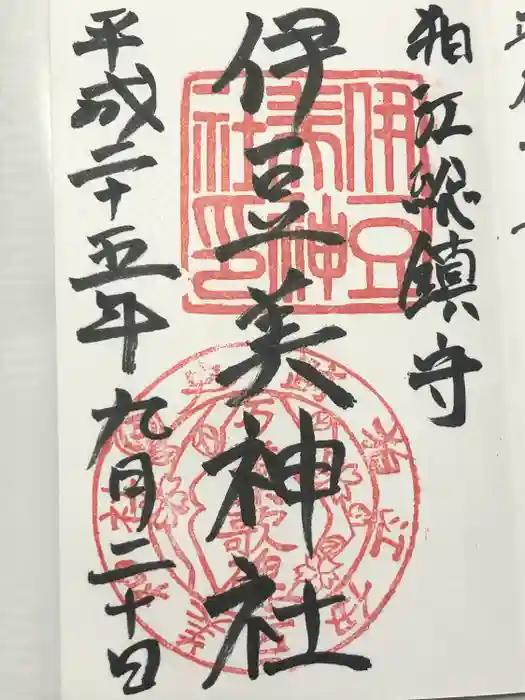 狛江総鎮守
伊豆美神社
平成二十五年九月二十日
伊豆美神社印